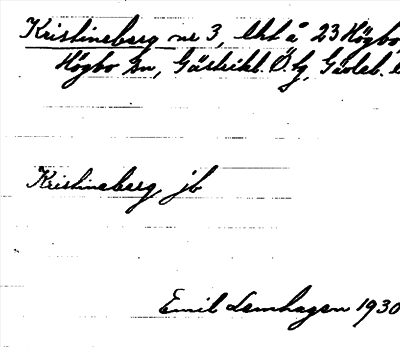 Kristineberg nr 3, lht å 23 Högbo
Högbo sn, Gästrikl. Ö. tg, Gävleb. l
Kristineberg, jb
Emil Lemhagen 1930